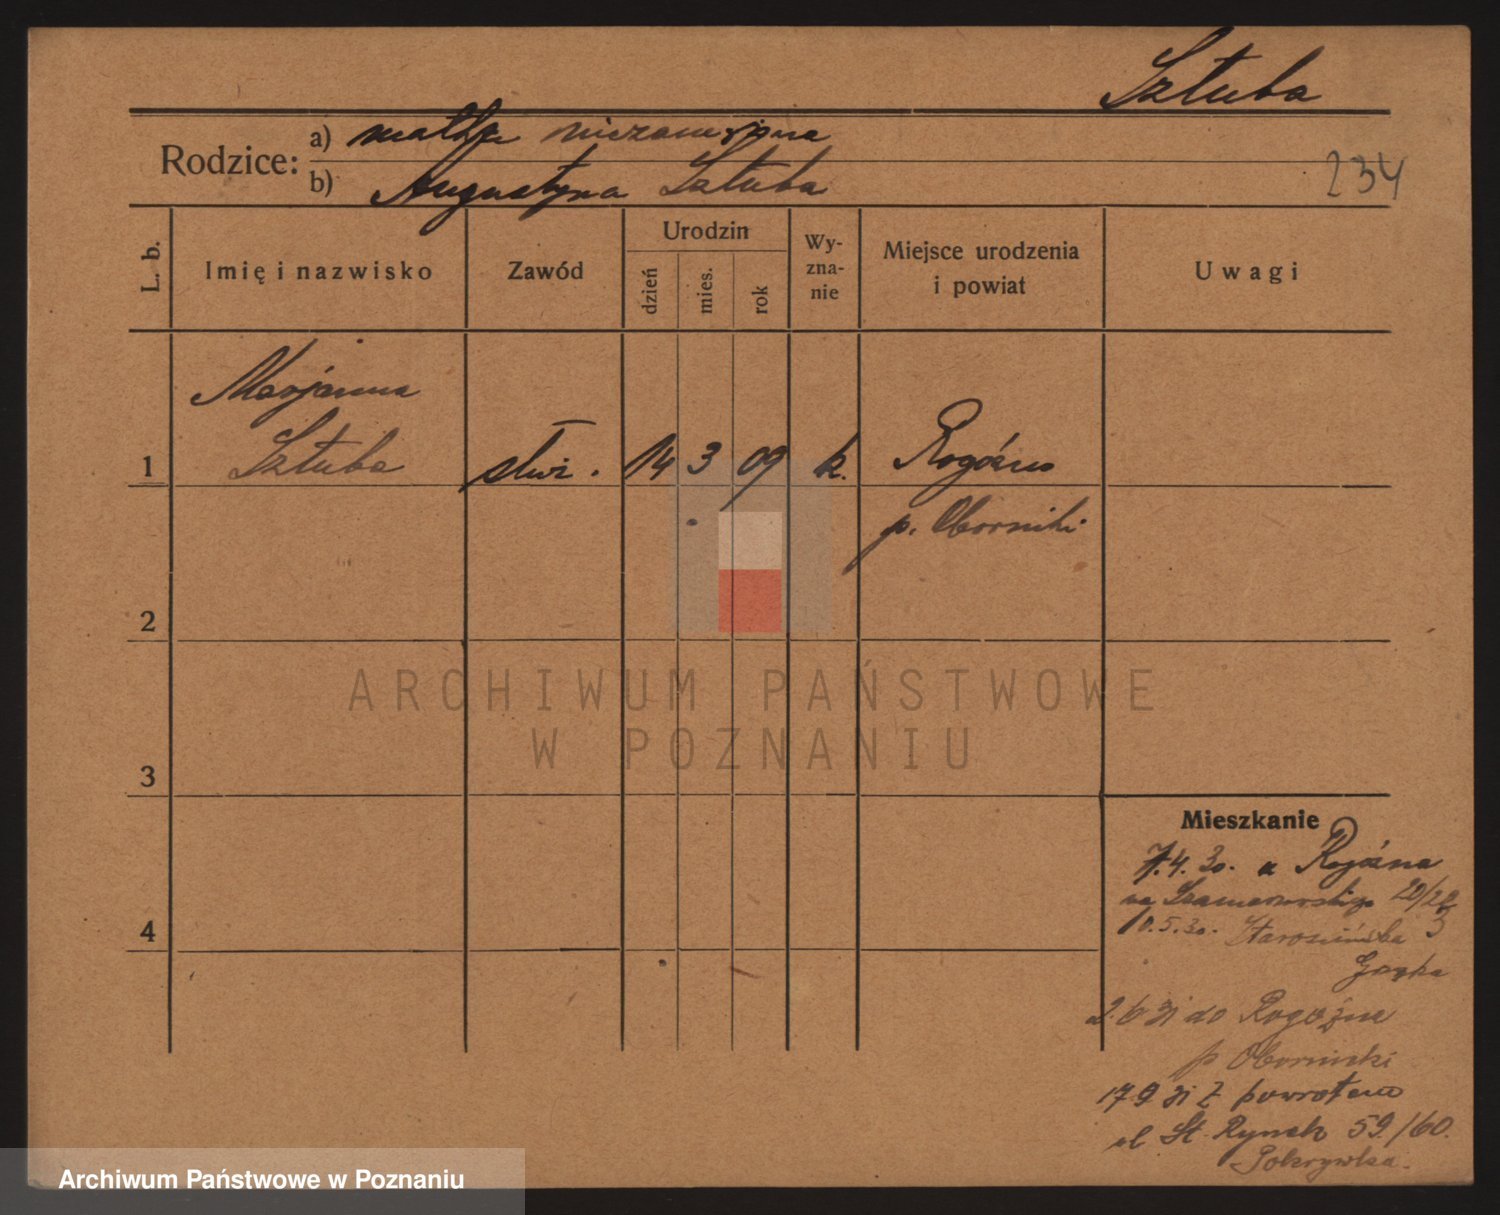 Sztuba
Rodzice:
a) matka niezamężna
b) Augustyna Sztuba
234
L. b.
Imię i nazwisko
Zawód
Urodzin
dzień
mies.
rok
Wy-
zna-
nie
Miejsce urodzenia
i powiat
Uwagi
Marjanna
1 Sztuba służ. 14 3 09 k. Rogóźno
p. Oborniki
2
ARCHIWUM PAŃSTWOWE
W POZNANIU
3
Mieszkanie
7.4.30. z Rogóźna
20/22
4
10.5.30. 3
2.6 31 do Rogoźna
p Oborniki
17 9 31 z powrotem
ul St. Rynek 59./60.
Pokrywka.
Archiwum Państwowe w Poznaniu